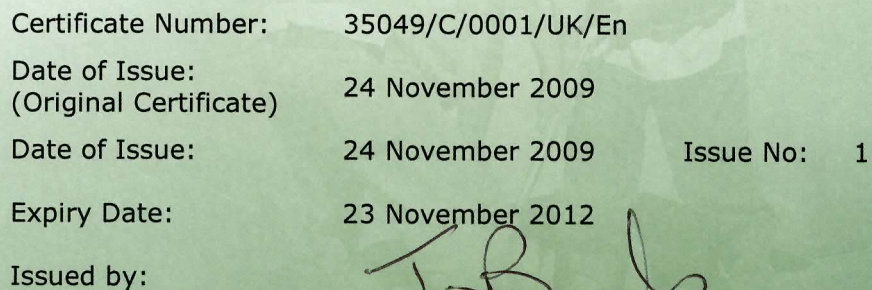 Certificate Number: 35049/C/0001/UK/En
Date of Issue:
(Original Certificate) 24 November 2009
Date of Issue: 24 November 2009 Issue No: 1
Expiry Date: 23 November 2012
Issued by: